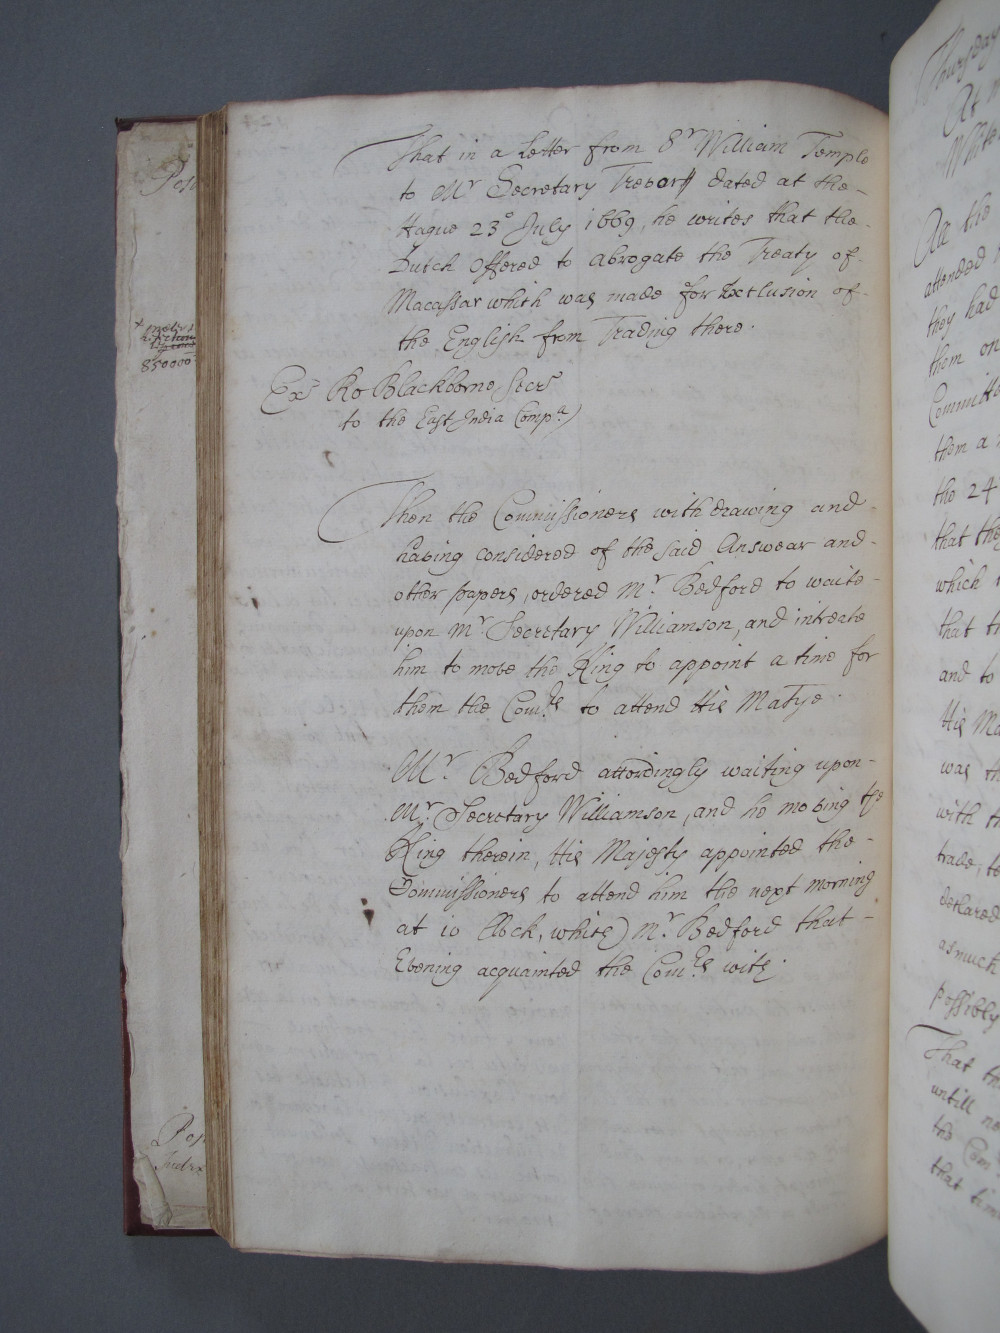 That in a Letter from Sr William Temple
to Mr Secretary Trevor dated at the
Hague 23o July 1669, he writes that the
Dutch offered to abrogate the Treaty of
Macassar which was made for Exclusion of
the English from Trading there.
Exr Ro Blackborne Secry
to the East India Compa
Then the Commissioners withdrawing and
having considered of the said Answear and
other papers, ordered Mr Bedford to waite
upon Mr Secretary Williamson, and intreate
him to move the King to appoint a time for
them the Comrs to attend His Matye.
Mr. Bedford accordingly waiting upon
Mr Secretary Williamson, and he moving the
King therein, His Majesty appointed the
Commissioners to attend him the next morning
at 10 Clock, which Mr Bedford that
Evening acquainted the Comrs with.
850000
Thursday
At
White
the
attended
they had
them on
Committe
them a
the 24
that the
which
that th
and to
His Ma
was th
with th
trade, to
declared
asmuch
possibly
That th
untill no
the Com
that time